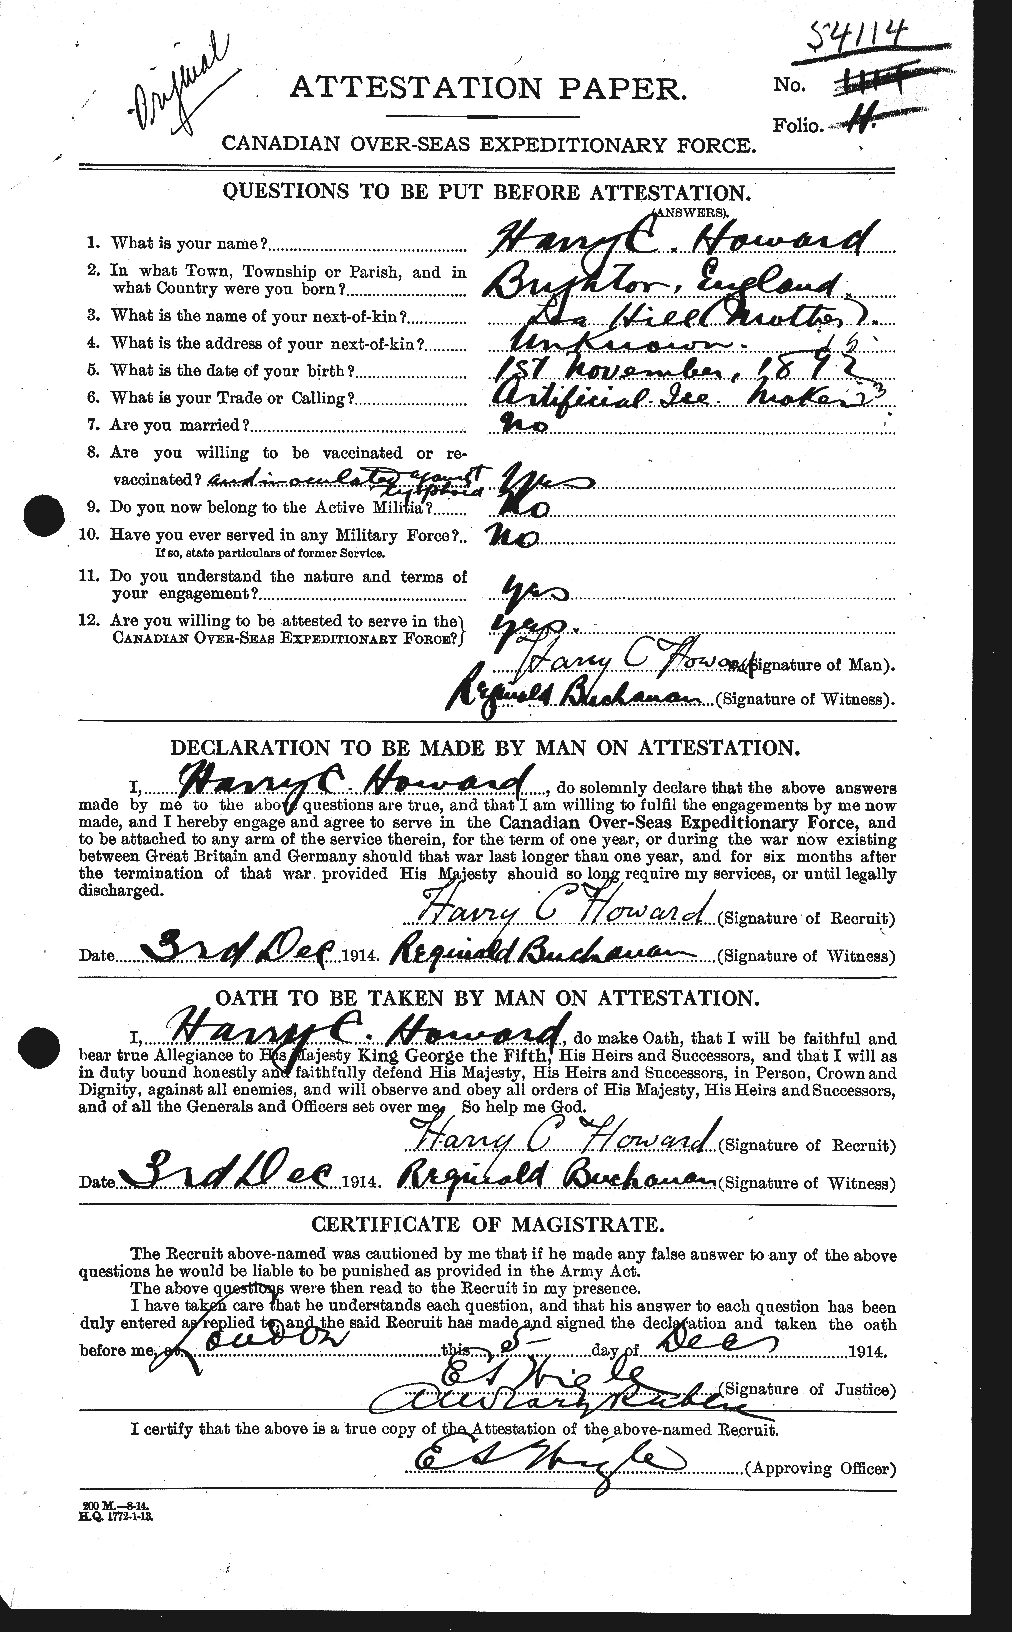 Original
54114
ATTESTATION PAPER.
No.
Folio. H.
CANADIAN OVER-SEAS EXPEDITIONARY FORCE.
QUESTIONS TO BE PUT BEFORE ATTESTATION.
(ANSWERS).
1. What is your name? Harry C. Howard
2. In what Town, Township or Parish, and in
what Country were you born? Brighton, England
3. What is the name of your next-of-kin? Hill (Mother).
4. What is the address of your next-of-kin? Unknown.
5. What is the date of your birth? 1st November, 1892
6. What is your Trade or Calling? Artificial Ice Maker
7. Are you married? No
8. Are you willing to be vaccinated or re-
vaccinated? and inoculated against typhoid Yes
9. Do you now belong to the Active Militia? No
10. Have you ever served in any Military Force? No
If so, state particulars of former Service.
11. Do you understand the nature and terms of
your engagement? Yes
12. Are you willing to be attested to serve in the
CANADIAN OVER-SEAS EXPEDITIONARY FORCE? Yes.
Harry C Howard (Signature of Man).
Reginald Buchanan (Signature of Witness).
DECLARATION TO BE MADE BY MAN ON ATTESTATION.
I, Harry C. Howard, do solemnly declare that the above answers
made by me to the above questions are true, and that I am willing to fulfil the engagements by me now
made, and I hereby engage and agree to serve in the Canadian Over-Seas Expeditionary Force, and
to be attached to any arm of the service therein, for the term of one year, or during the war now existing
between Great Britain and Germany should that war last longer than one year, and for six months after
the termination of that war provided His Majesty should so long require my services, or until legally
discharged.
Harry C Howard (Signature of Recruit)
Date 3rd Dec 1914. Reginald Buchanan (Signature of Witness)
OATH TO BE TAKEN BY MAN ON ATTESTATION.
I, Harry C. Howard, do make Oath, that I will be faithful and
bear true Allegiance to His Majesty King George the Fifth, His Heirs and Successors, and that I will as
in duty bound honestly and faithfully defend His Majesty, His Heirs and Successors, in Person, Crown and
Dignity, against all enemies, and will observe and obey all orders of His Majesty, His Heirs and Successors,
and of all the Generals and Officers set over me. So help me God.
Harry C Howard (Signature of Recruit)
Date 3rd Dec 1914. Reginald Buchanan (Signature of Witness)
CERTIFICATE OF MAGISTRATE.
The Recruit above-named was cautioned by me that if he made any false answer to any of the above
questions he would be liable to be punished as provided in the Army Act.
The above questions were then read to the Recruit in my presence.
I have taken care that he understands each question, and that his answer to each question has been
duly entered as replied to, and the said Recruit has made and signed the declaration and taken the oath
before me, at London this 5 day of Dec 1914.
E S Wigle (Signature of Justice)
A Notary Public
I certify that the above is a true copy of the Attestation of the above-named Recruit.
E S Wigle (Approving Officer)
200 M.—8-14.
H.Q. 1772-1-13.